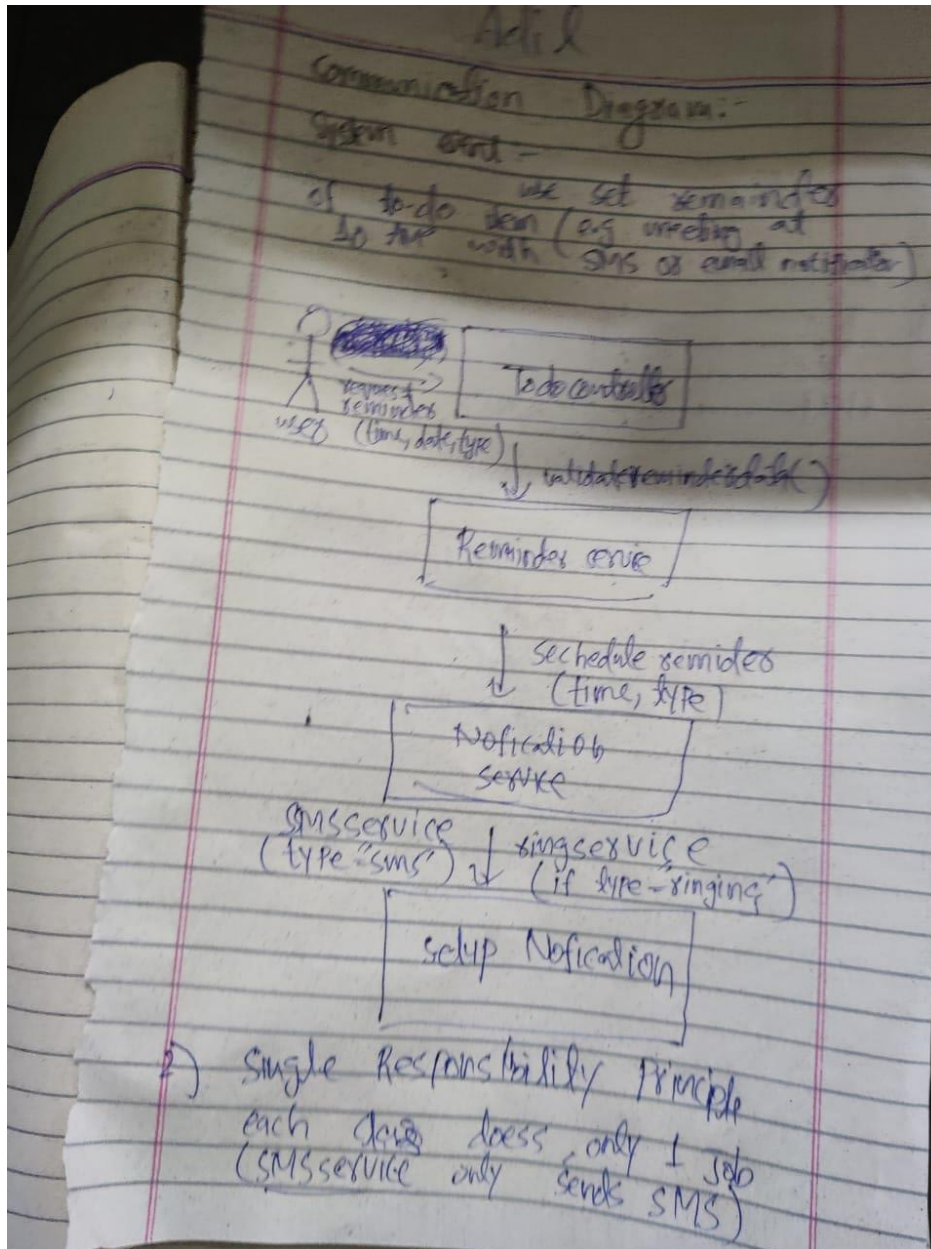 Adil
Communication Diagram:-
System event -
use set remainder
of to-do item (e.g meeting at
10 AM with SMS or email notification)
request
reminder
(time, date, type)
user
Todo controller
validatereminderdata()
Reminder servie
sechedule remider
(time, type)
Nofication
service
SMSservice
(type="sms")
ringservice
(if type="ringing")
setup Nofication
2) Single Responsibility Principle
each class doess only 1 job
(SMSservice only sends SMS)